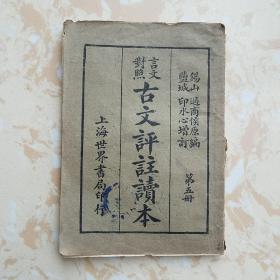 錫山 過商侯原編
鹽城 印水心增訂
言文對照
古文評註讀本
第五冊
上海世界書局印行